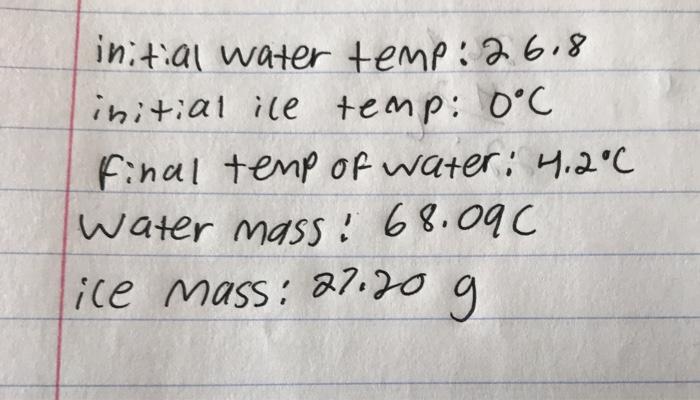 initial water temp: 26.8
initial ice temp: 0°C
Final temp of water: 4.2°C
Water mass: 68.09C
ice mass: 27.20 g